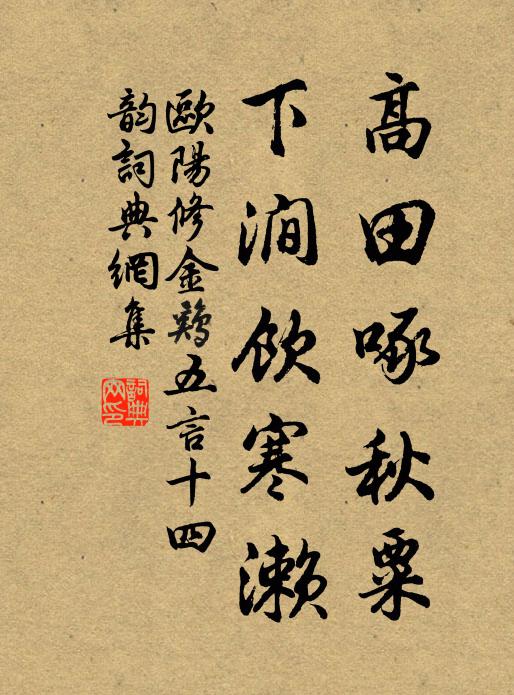 高田啄秋粟
下澗飲寒瀨
歐陽修金鷄五言十四
韵詞典網集
詞典網印